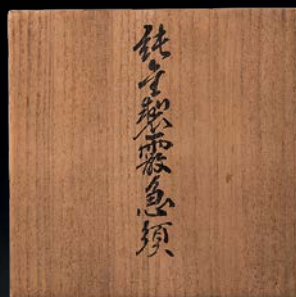 純金製霰急須